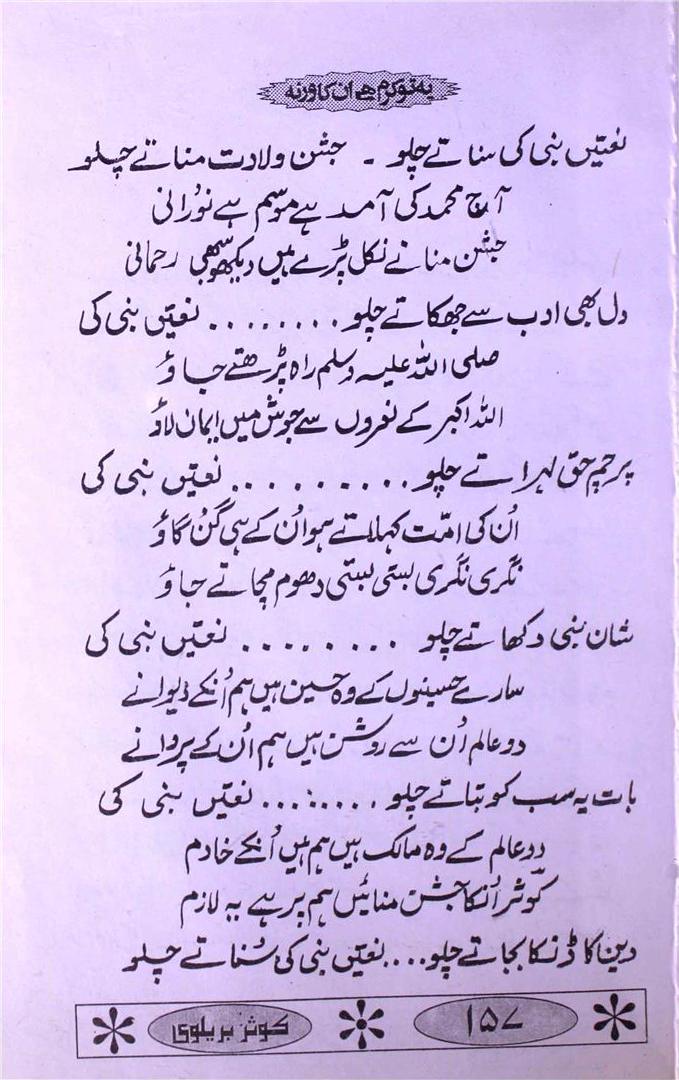 یہ تو کرم ہے ان کا ورنہ
نعتیں نبی کی سناتے چلو ۔ جشن ولادت مناتے چلو
آج محمد کی آمد ہے موسم ہے نُورانی
جشن منانے نکل پڑے ہیں دیکھو سبھی رحمانی
دل بھی ادب سے جھکاتے چلو ........ نعتیں نبی کی
صلی اللہ علیہ وسلم راہ پڑھتے جاؤ
اللہ اکبر کے نعروں سے جوش میں ایمان لاؤ
پرچم حق لہراتے چلو ......... نعتیں نبی کی
اُن کی امّت کہلاتے ہو اُن کے ہی گُن گاؤ
نگری نگری بستی بستی دھوم مچاتے جاؤ
شان نبی دکھاتے چلو ........ نعتیں نبی کی
سارے حسینوں کے وہ حسین ہیں ہم اُنکے دیوانے
دو عالم اُن سے روشن ہیں ہم اُن کے پروانے
بات یہ سب کو بتاتے چلو ........ نعتیں نبی کی
دو عالم کے وہ مالک ہیں ہم ہیں اُنکے خادم
کوثر اُنکا جشن منائیں ہم پر ہے یہ لازم
دین کا ڈنکا بجاتے چلو .... نعتیں نبی کی سُناتے چلو
۱۵۷
کوثر بریلوی